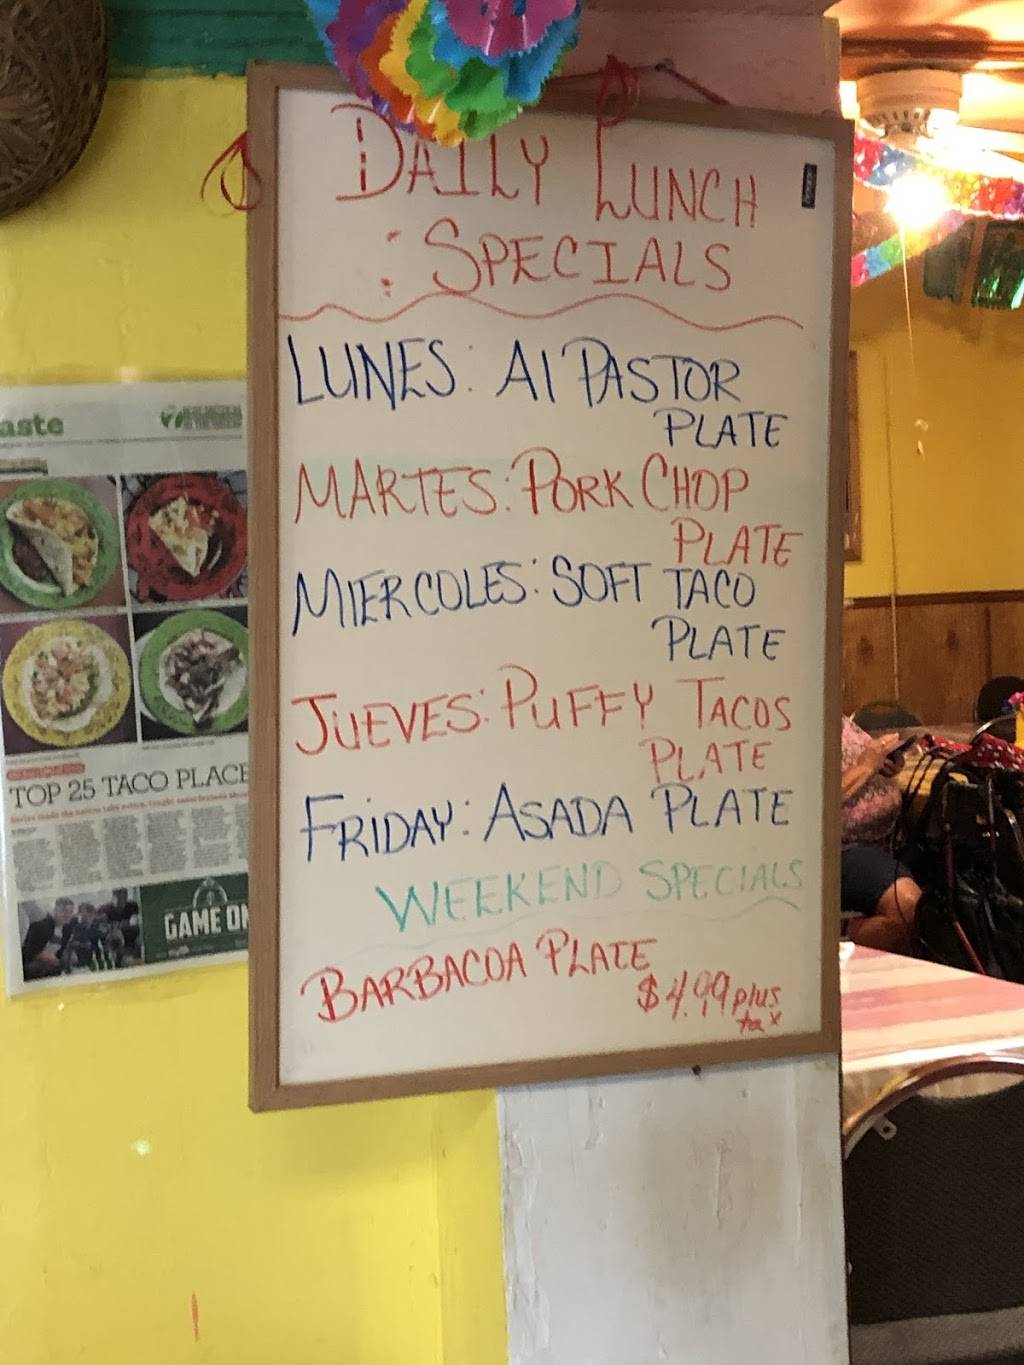 DAILY LUNCH
: SPECIALS
LUNES: Al PASTOR
PLATE
MARTES: PORK CHOP
PLATE
MIERCOLES: SOFT TACO
PLATE
JUEVES: PUFFY TACOS
PLATE
FRIDAY: ASADA PLATE
WEEKEND SPECIALS
BARBACOA PLATE
$4.99 plus
tax
aste
TOP 25 TACO PLACE
GAME ON